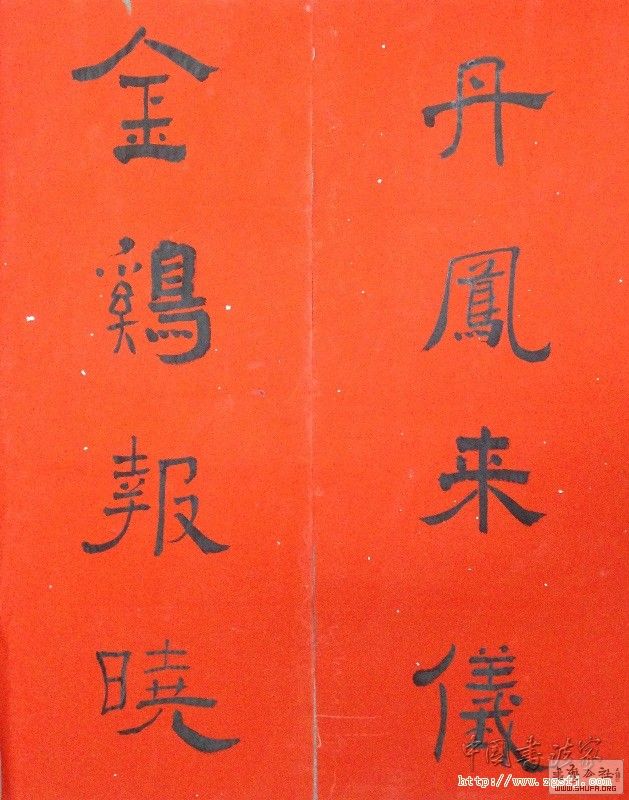 丹鳳来儀
金鷄報曉
中国书法家
http://www.zgsfj.com
WWW.SHUFA.ORG